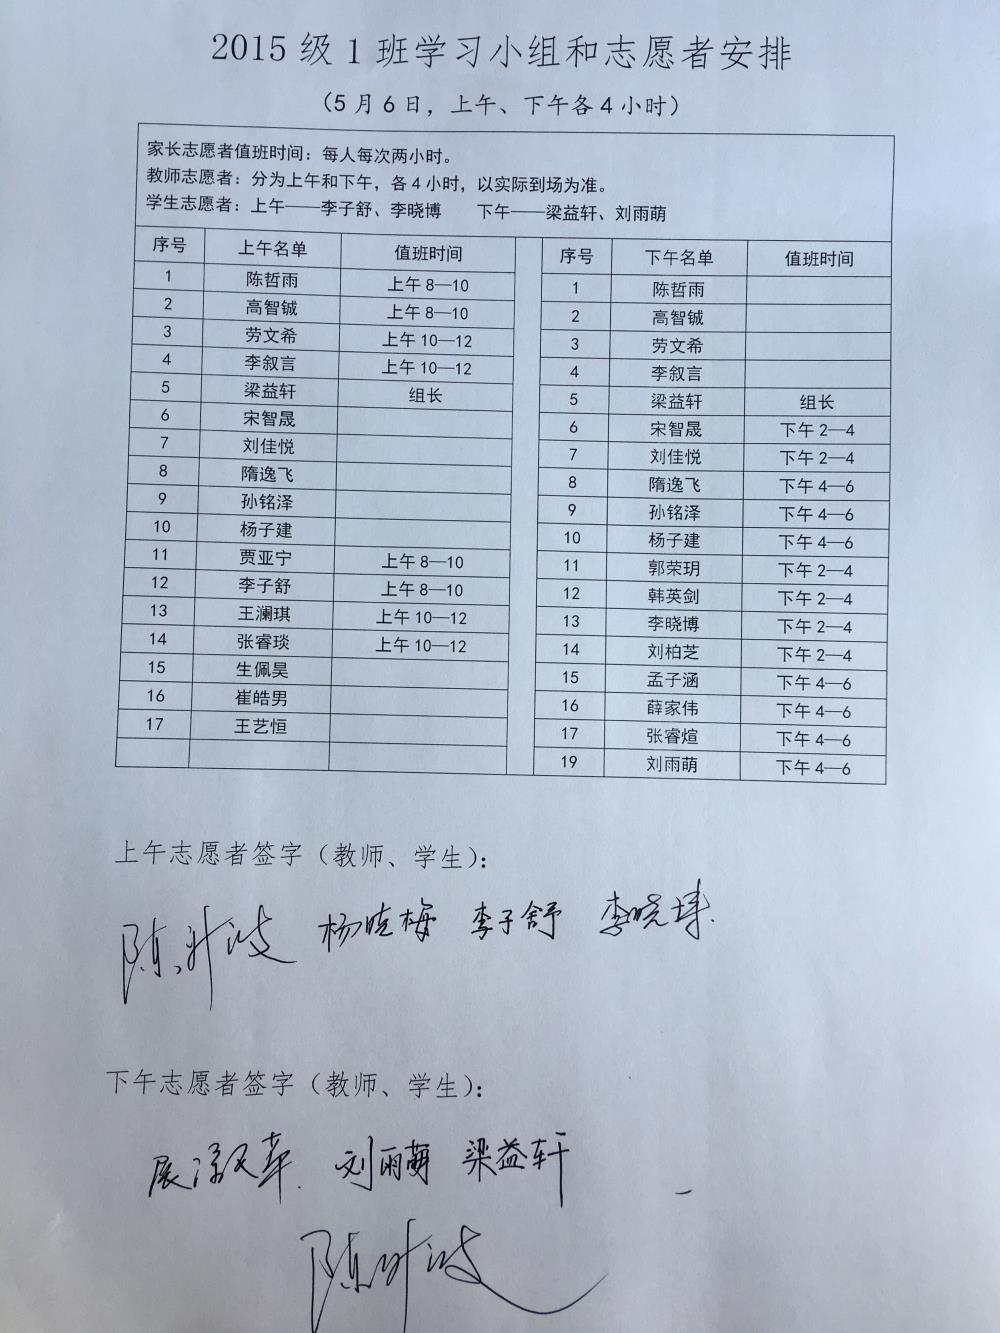 2015 级 1 班学习小组和志愿者安排
（5 月 6 日，上午、下午各 4 小时）
家长志愿者值班时间：每人每次两小时。
教师志愿者：分为上午和下午，各 4 小时，以实际到场为准。
学生志愿者：上午——李子舒、李晓博 下午——梁益轩、刘雨萌
序号 上午名单 值班时间 序号 下午名单 值班时间
1 陈哲雨 上午 8—10 1 陈哲雨
2 高智铖 上午 8—10 2 高智铖
3 劳文希 上午 10—12 3 劳文希
4 李叙言 上午 10—12 4 李叙言
5 梁益轩 组长 5 梁益轩 组长
6 宋智晟 6 宋智晟 下午 2—4
7 刘佳悦 7 刘佳悦 下午 2—4
8 隋逸飞 8 隋逸飞 下午 4—6
9 孙铭泽 9 孙铭泽 下午 4—6
10 杨子建 10 杨子建 下午 4—6
11 贾亚宁 上午 8—10 11 郭荣玥 下午 2—4
12 李子舒 上午 8—10 12 韩英剑 下午 2—4
13 王澜琪 上午 10—12 13 李晓博 下午 2—4
14 张睿琰 上午 10—12 14 刘柏芝 下午 2—4
15 生佩昊 15 孟子涵 下午 4—6
16 崔皓男 16 薛家伟 下午 4—6
17 王艺恒 17 张睿煊 下午 4—6
19 刘雨萌 下午 4—6
上午志愿者签字（教师、学生）：
杨晓梅 李子舒 李晓博
下午志愿者签字（教师、学生）：
刘雨萌 梁益轩